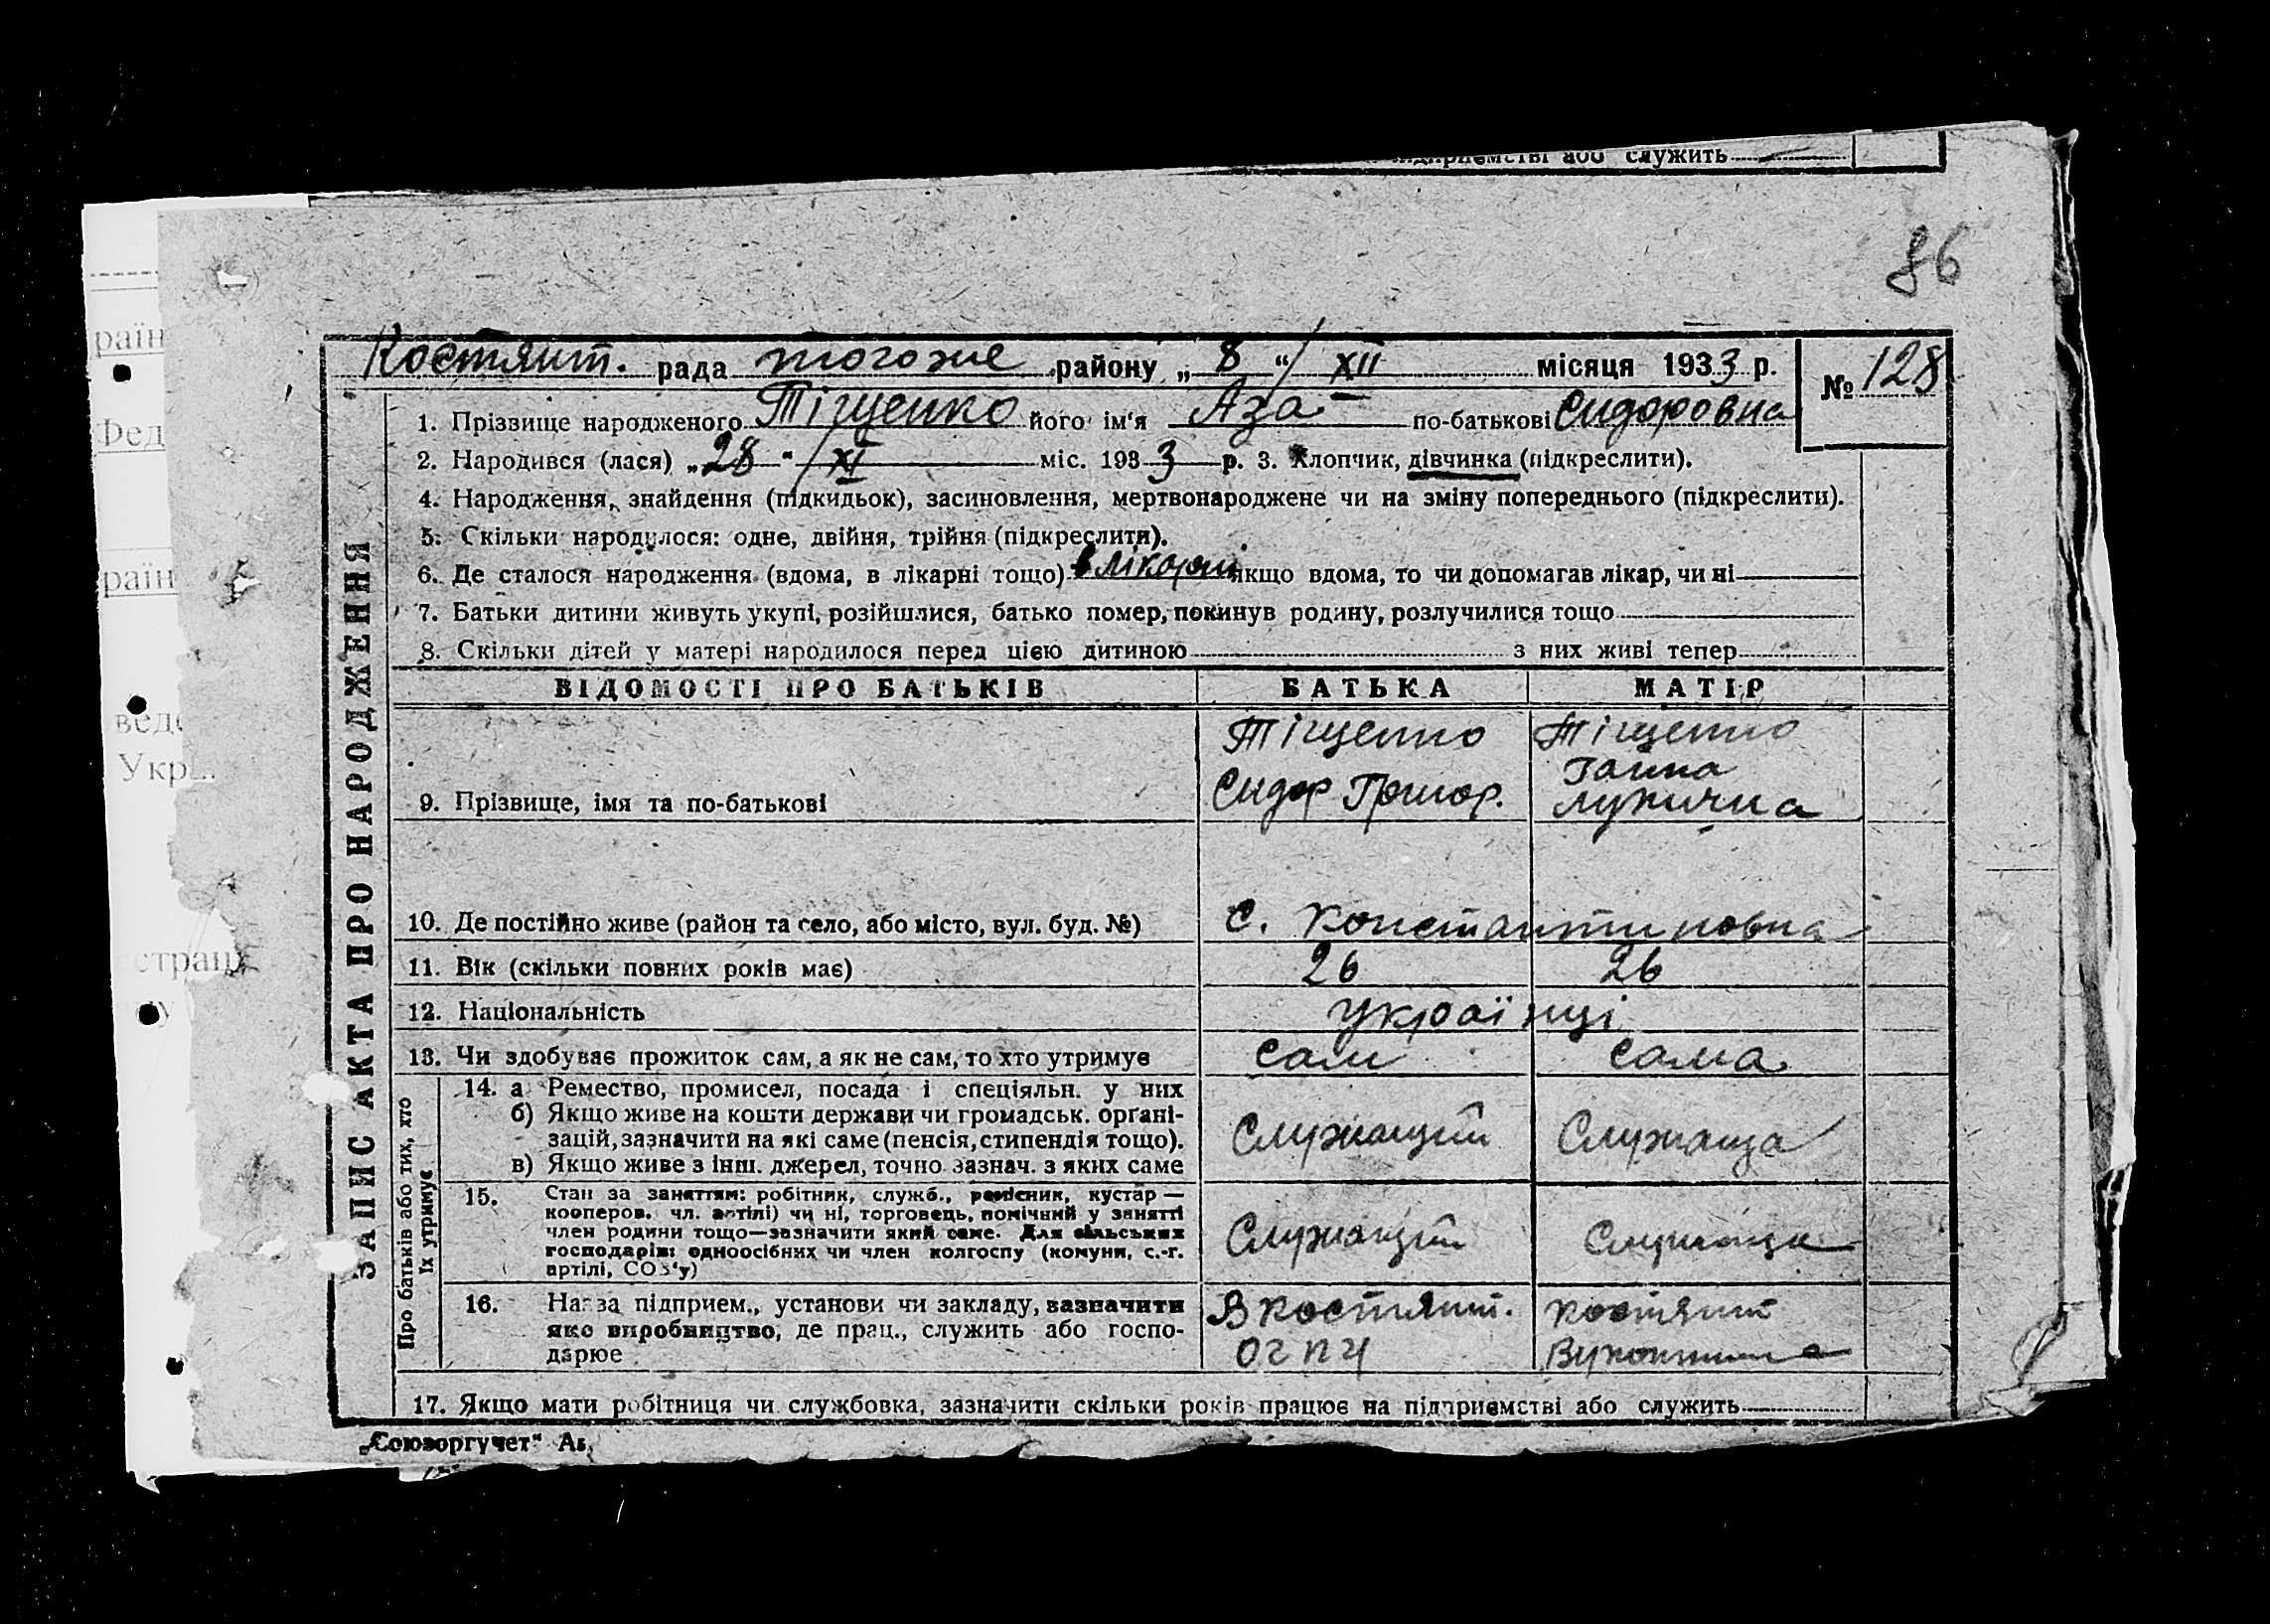 підприємстві або служить
86
Костянт. рада того же району „8“/XII місяця 1933 р. № 128
1. Прізвище народженого Тіщенко його ім‘я Аза по-батькові Сидоровна
2. Народився (лася) „28“/XI міс. 1933 р. 3. Хлопчик, дівчинка (підкреслити).
4. Народження, знайдення (підкидьок), засиновлення, мертвонароджене чи на зміну попереднього (підкреслити).
5. Скільки народилося: одне, двійня, трійня (підкреслити).
6. Де сталося народження (вдома, в лікарні тощо) в лікарні якщо вдома, то чи допомагав лікар, чи ні
7. Батьки дитини живуть укупі, розійшлися, батько помер, покинув родину, розлучилися тощо
8. Скільки дітей у матері народилося перед цією дитиною з них живі тепер
ЗАПИС АКТА ПРО НАРОДЖЕННЯ
ВІДОМОСТІ ПРО БАТЬКІВ БАТЬКА МАТІР
Тіщенко Тіщенко
Ганна
9. Прізвище, імя та по-батькові Сидор Григор.
10. Де постійно живе (район та село, або місто, вул. буд. №) с. Константиновна
11. Вік (скільки повних років має) 26 26
12. Національність Українці
13. Чи здобуває прожиток сам, а як не сам, то хто утримує сам сама
Про батьків або тих, хто
їх утримує
14. а Ремество, промисел, посада і спеціяльн. у них
б) Якщо живе на кошти держави чи громадськ. органі-
зацій, зазначити на які саме (пенсія, стипендія тощо). Служащій Служаща
в) Якщо живе з інш. джерел, точно зазнач. з яких саме
15. Стан за заняттям: робітник, служб., ремісник, кустар —
кооперов. чл. артілі) чи ні, торговець, помічний у занятті
член родини тощо—зазначити який саме. Для сільських Служащій Служаща
господарів: одноосібних чи член колгоспу (комуни, с.-г.
артілі, СОЗ‘у)
16. Назва підприєм., установи чи закладу, зазначити В Костянт. Костянт
яке виробництво, де прац., служить або госпо-
дарює
17. Якщо мати робітниця чи службовка, зазначити скільки років працює на підприємстві або служить
„Союзоргучет“
раїн
Фед
раїн
Укр
страц